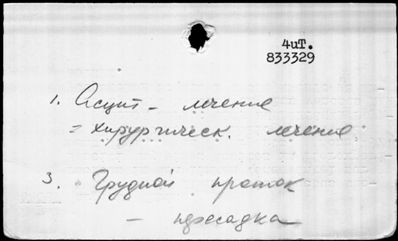 4иТ.
833329
1. Асцит - лечение
= хирургическ. лечение
3. Грудной проток
- пересадка